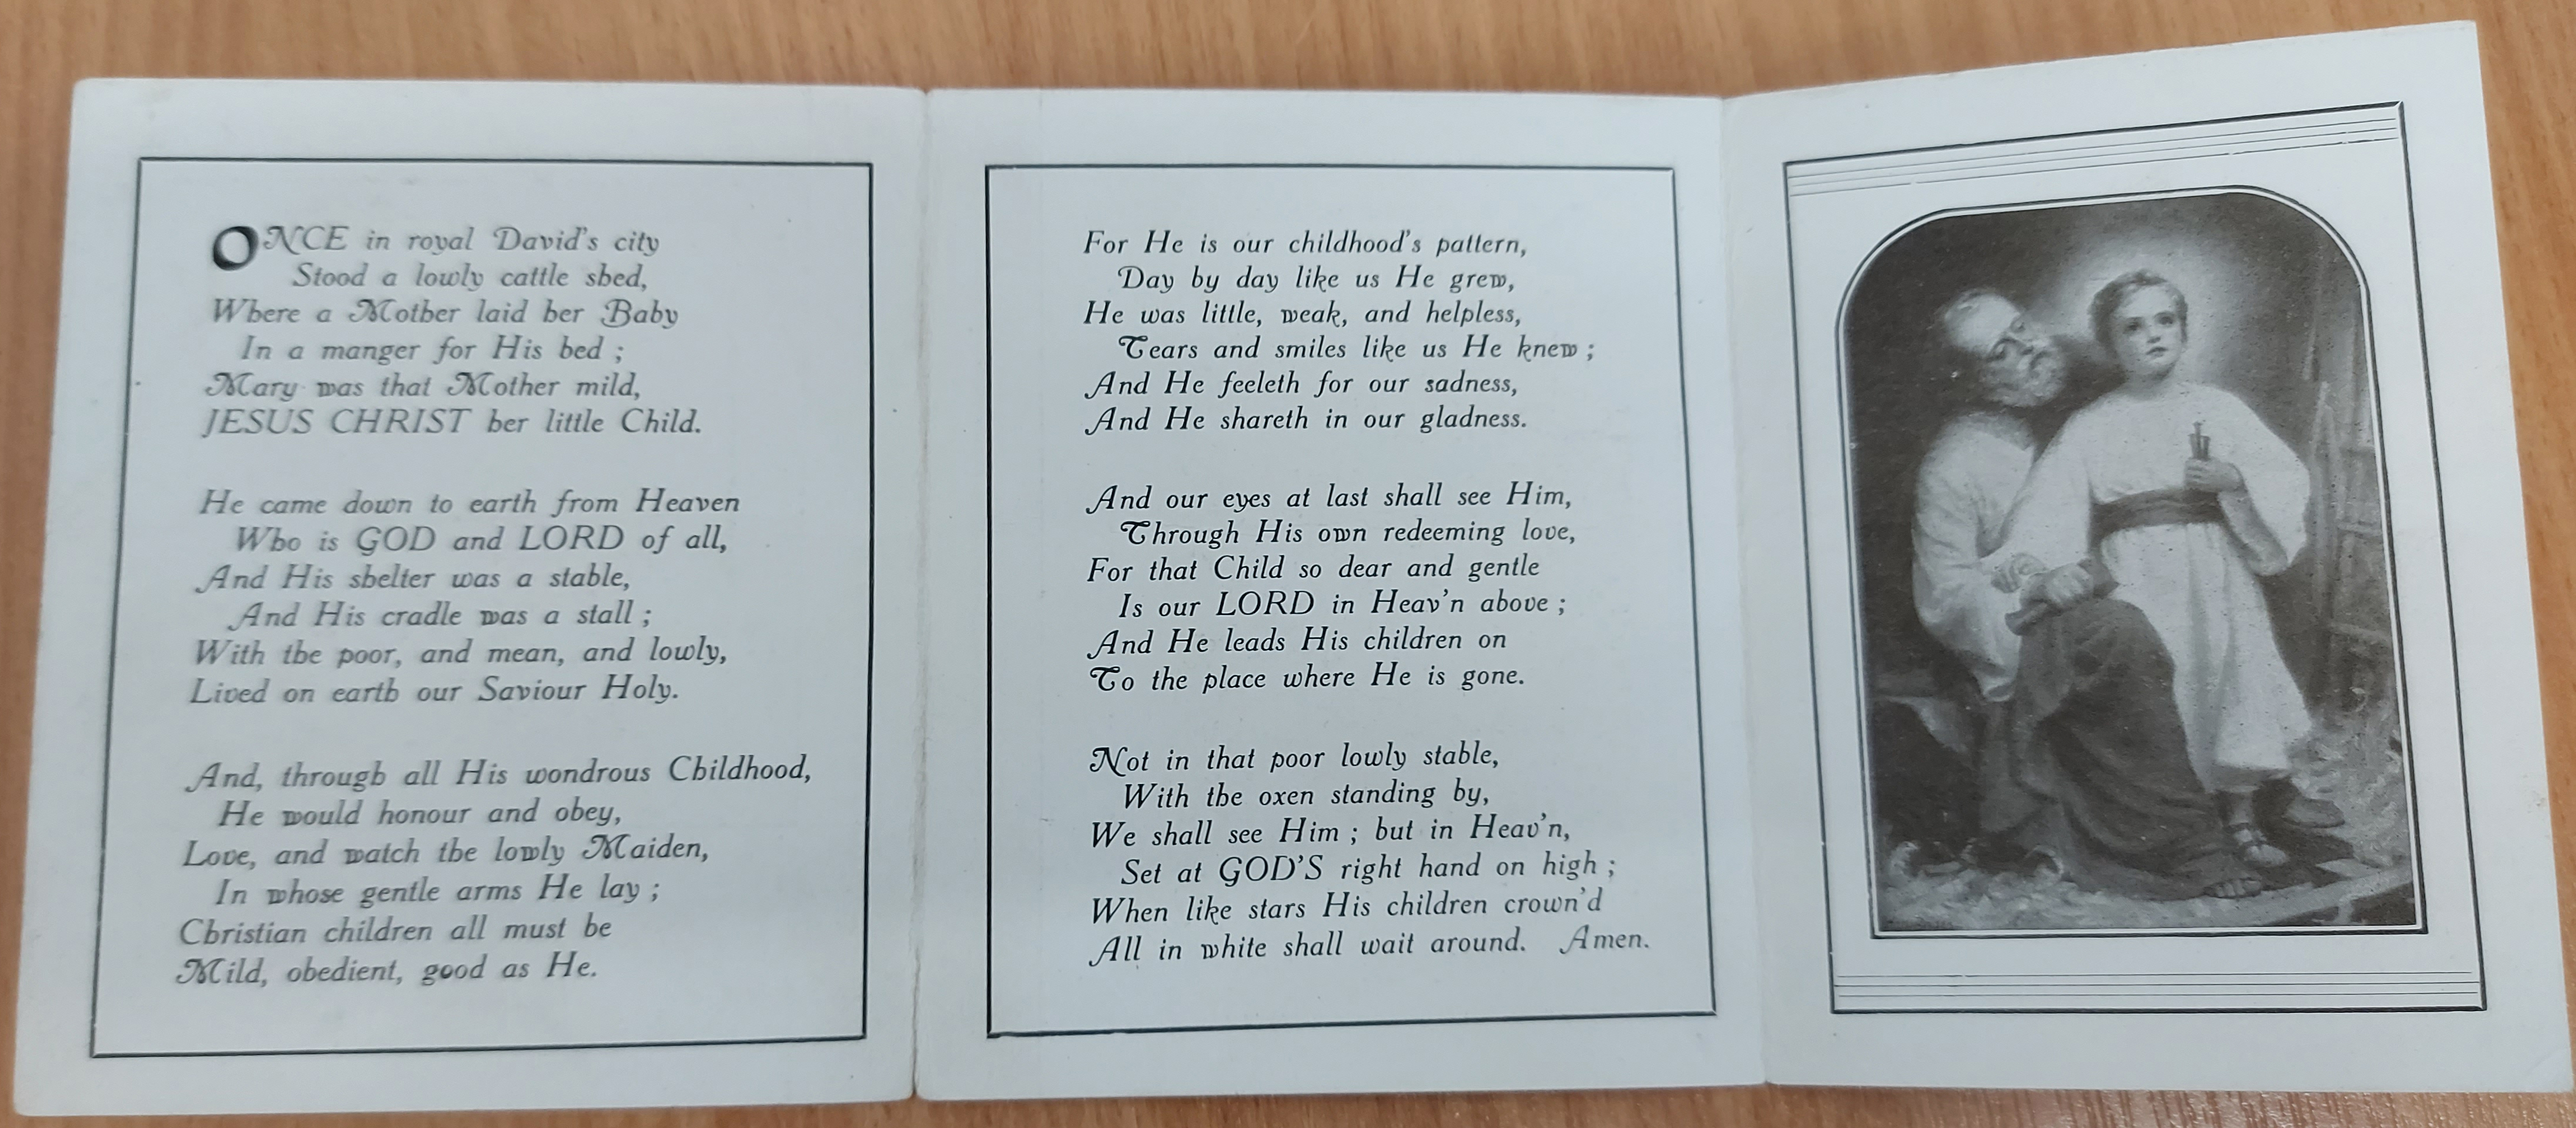 ONCE in royal David's city
Stood a lowly cattle shed,
Where a Mother laid her Baby
In a manger for His bed ;
Mary was that Mother mild,
JESUS CHRIST her little Child.
He came down to earth from Heaven
Who is GOD and LORD of all,
And His shelter was a stable,
And His cradle was a stall ;
With the poor, and mean, and lowly,
Lived on earth our Saviour Holy.
And, through all His wondrous Childhood,
He would honour and obey,
Love, and watch the lowly Maiden,
In whose gentle arms He lay ;
Christian children all must be
Mild, obedient, good as He.
For He is our childhood's pattern,
Day by day like us He grew,
He was little, weak, and helpless,
Tears and smiles like us He knew ;
And He feeleth for our sadness,
And He shareth in our gladness.
And our eyes at last shall see Him,
Through His own redeeming love,
For that Child so dear and gentle
Is our LORD in Heav'n above ;
And He leads His children on
To the place where He is gone.
Not in that poor lowly stable,
With the oxen standing by,
We shall see Him ; but in Heav'n,
Set at GOD'S right hand on high ;
When like stars His children crown'd
All in white shall wait around. Amen.